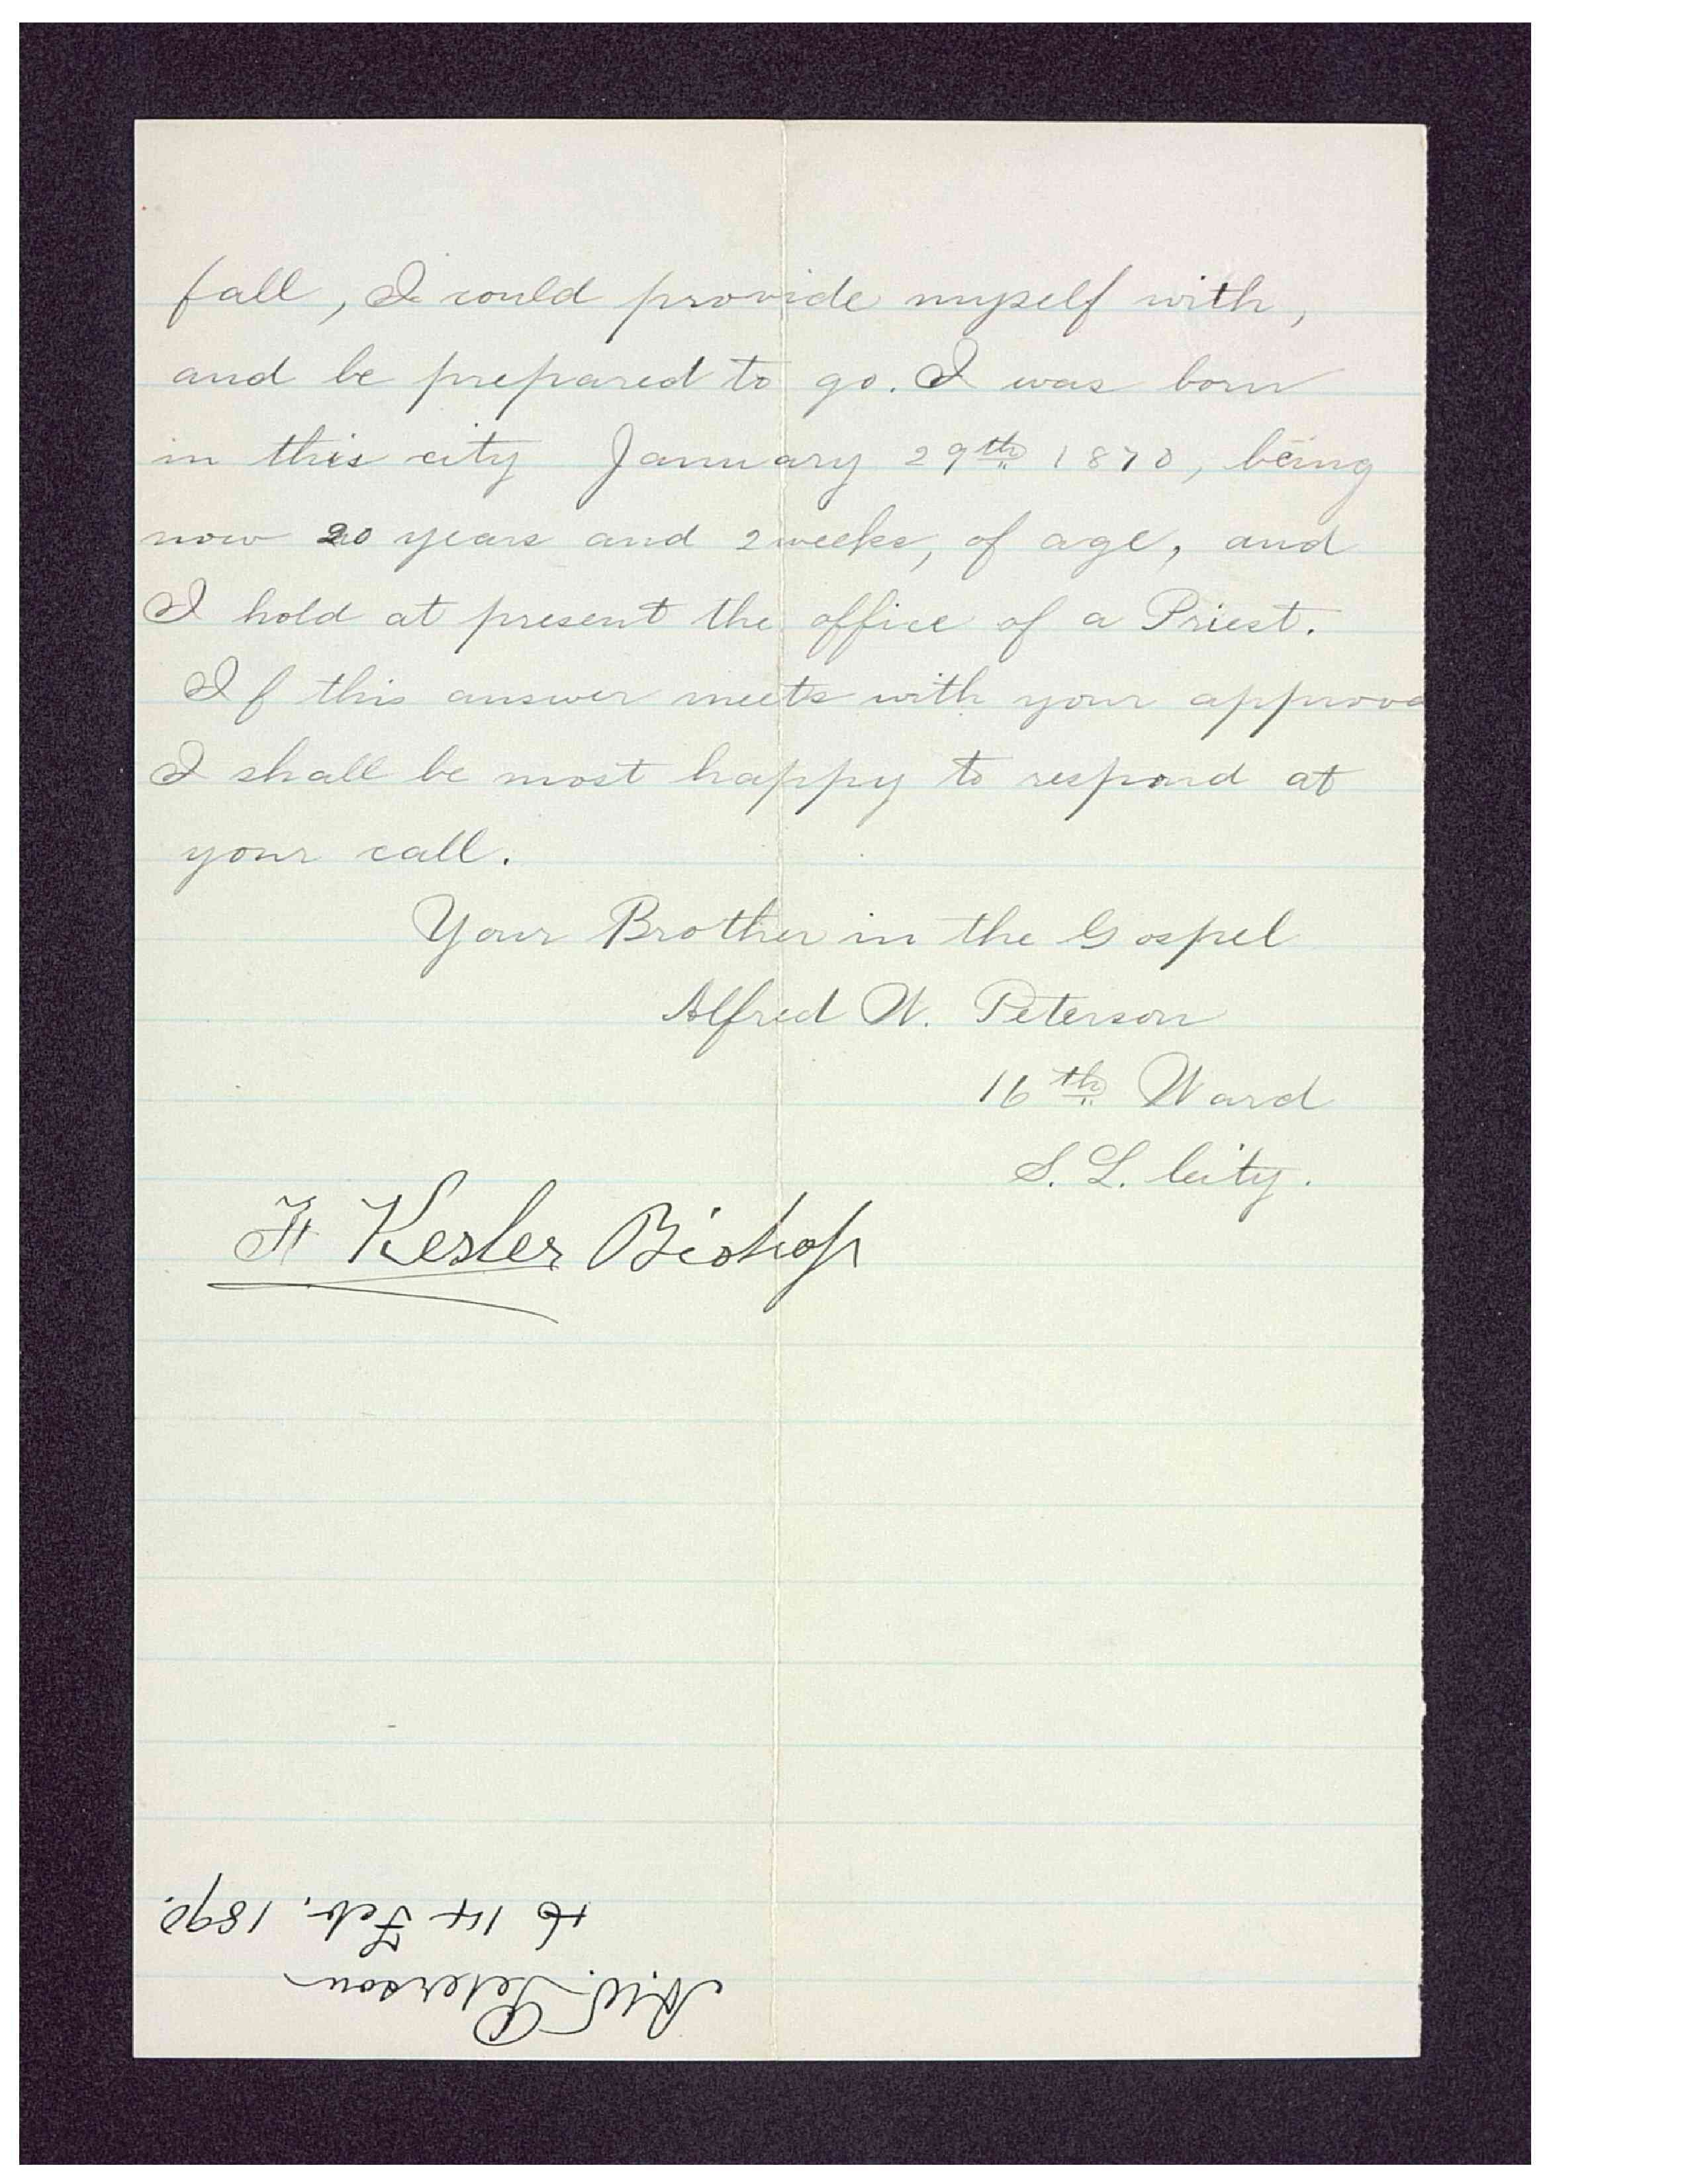 fall, I could provide myself with,
and be prepared to go. I was born
in this city January 29th 1870, being
now 20 years and 2 weeks, of age, and
I hold at present the office of a Priest.
If this answer meets with your approva
I shall be most happy to respond at
your call.
Your Brother in the Gospel
Alfred W. Peterson
16th Ward
S. L. City.
F Kesler Bishop
A.W. Peterson
14 Feb. 1890.